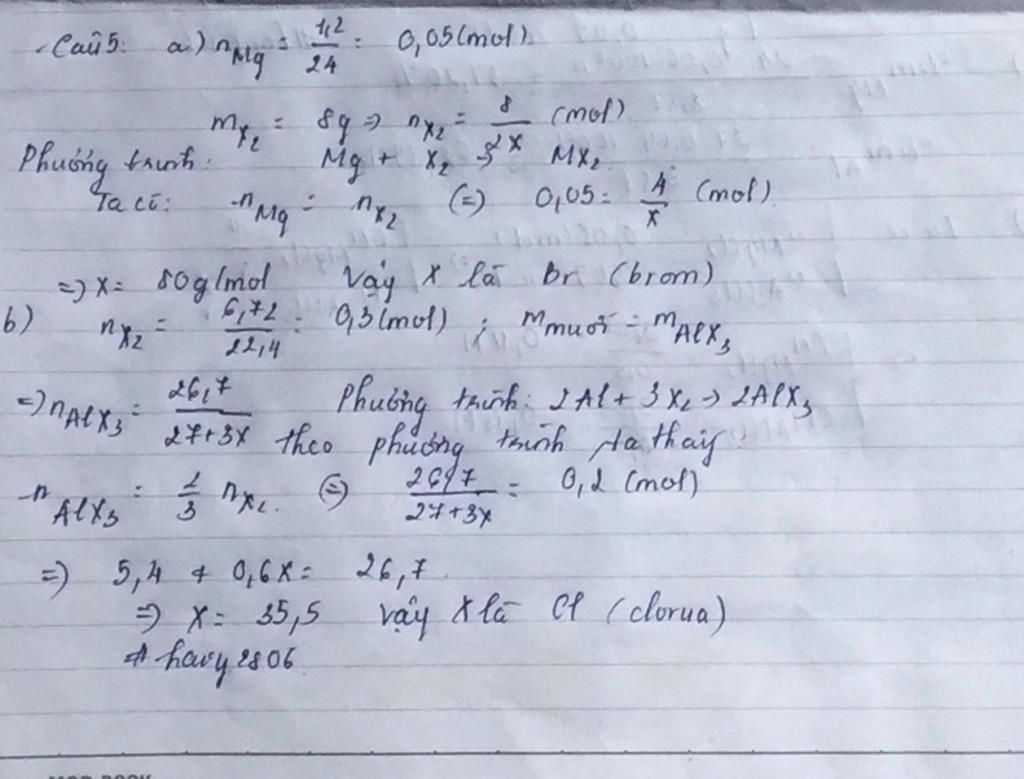 Câu 5: a) nMg = 1,2/24 = 0,05 (mol)
mX2 = 8g => nX2 = 8/2X (mol)
Phương trình: Mg + X2 → MX2
Ta có: nMg = nX2 (=) 0,05 = 4/X (mol)
=> X = 80g/mol Vậy X là Br (brom)
b) nX2 = 6,72/22,4 = 0,3 (mol) ; mmuối = mAlX3
=> nAlX3 = 26,7/27+3X Phương trình: 2Al + 3X2 → 2AlX3
theo phương trình ta thấy
nAlX3 = 2/3 nX2. (=) 26,7/27+3X = 0,2 (mol)
=> 5,4 + 0,6X = 26,7
=> X = 35,5 vậy X là Cl (clorua)